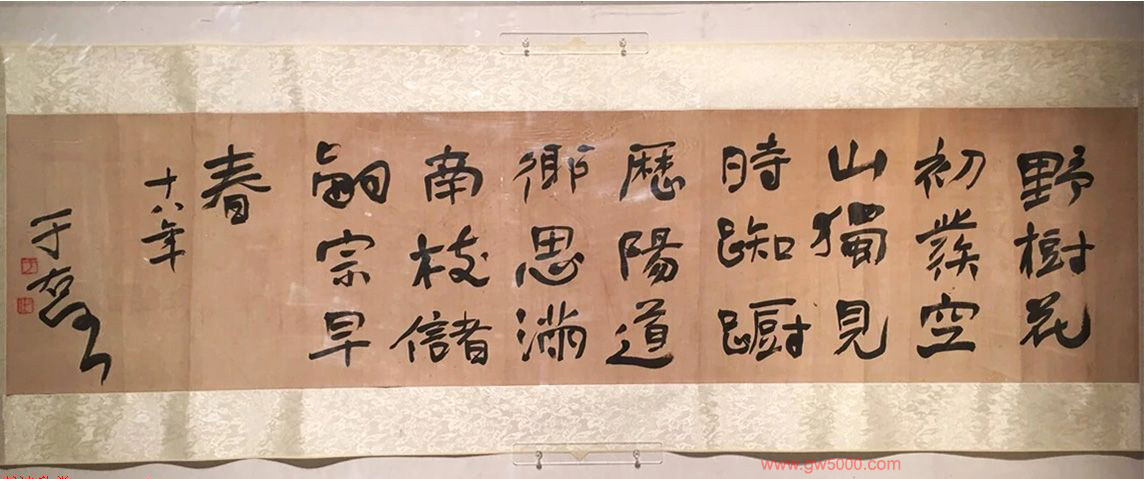 野樹花
初發空
山獨見
時踟躕
歷陽道
鄉思滿
南枝儲
嗣宗早
春
十八年
于右任
www.gw5000.com